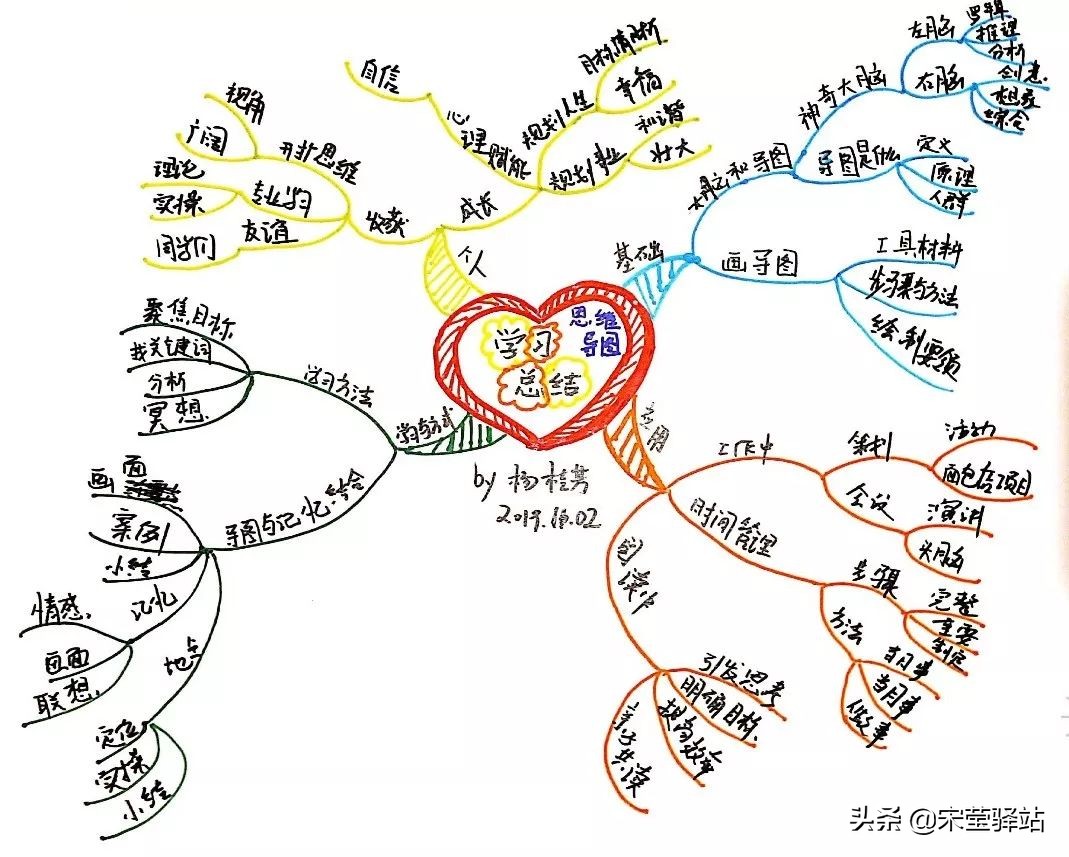 思维
导图
学习
总结
by 杨桂芳
基础
大脑和导图
神奇大脑
左脑
逻辑
推理
分析
右脑
创意
想象
综合
导图是什么
定义
原理
人群
画导图
工具材料
步骤与方法
绘制要领
应用
工作中
策划
活动
面包括项目
会议
演讲
头脑
时间管理
步骤
完整
重要
制定
方法
当月事
做事
阅读中
引发思考
明确目标
提高效率
亲子共读
学与方式
学习方法
聚焦目标
找关键词
分析
冥想
导图与记忆结合
画面
案例
小结
记忆
情感
画面
联想
地点
定位
实操
小结
个人
成长
心理赋能
自信
规划人生
目标清晰
幸福
规划事业
和谐
壮大
收获
开扩思维
视角
广阔
专业学习
理论
实操
友谊
同学们
头条 @宋莹驿站